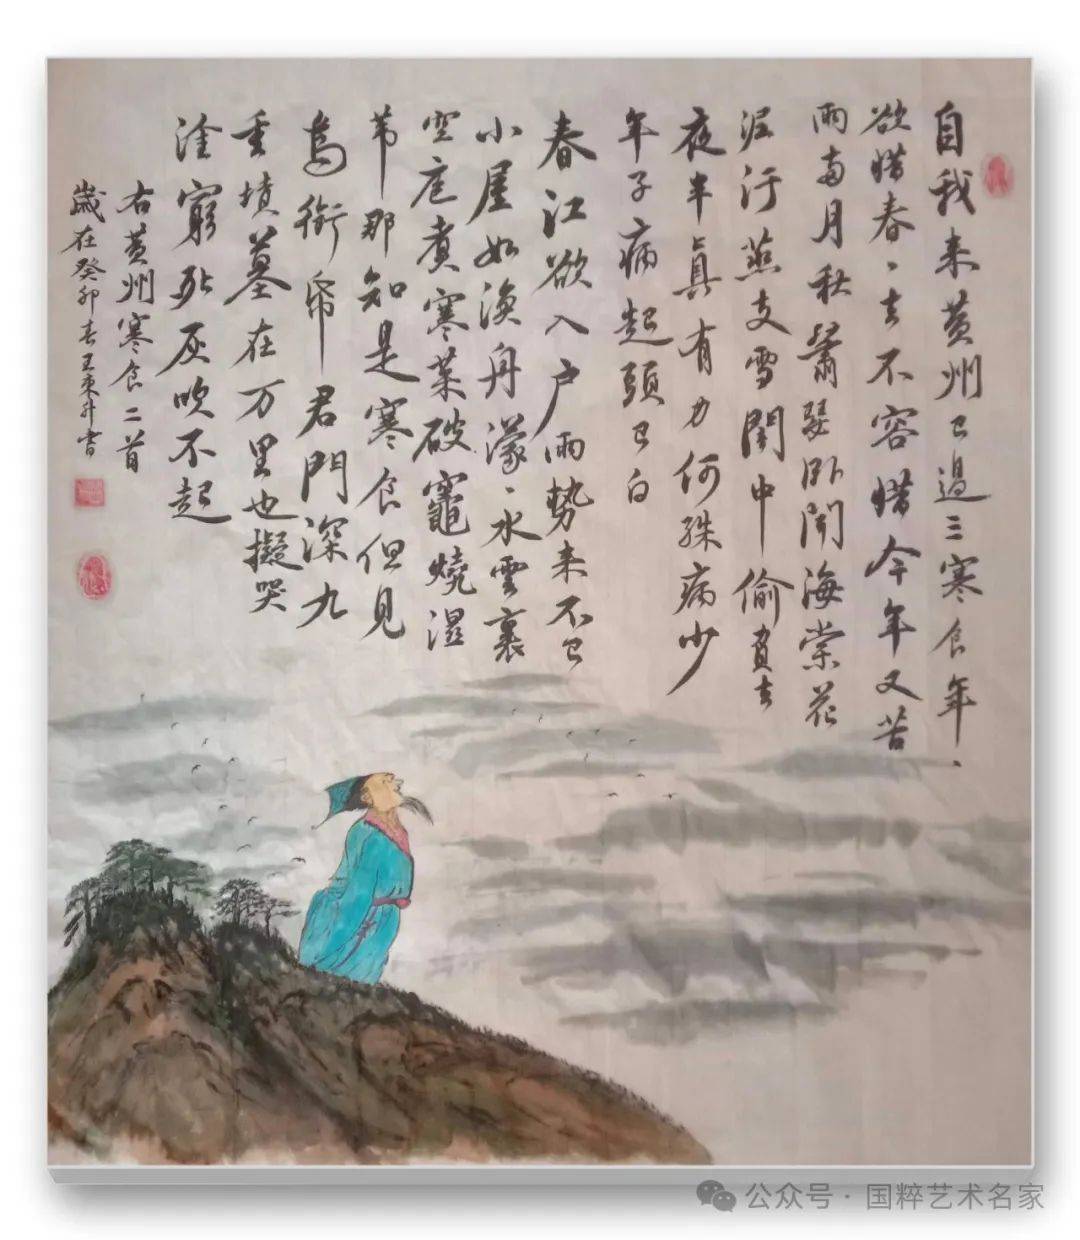 自我来黄州已過三寒食年、
欲惜春、去不容惜今年又苦
雨兩月秋蕭瑟卧聞海棠花
泥汙燕支雪闇中偷負去
夜半真有力何殊病少
年子病起頭已白
春江欲入户雨勢来不已
小屋如漁舟濛、水雲裏
空庖煮寒菜破竈燒湿
苇那知是寒食但見
烏銜帋君門深九
重墳墓在万里也擬哭
塗窮死灰吹不起
右黄州寒食二首
歲在癸卯春王東升書
公众号·国粹艺术名家